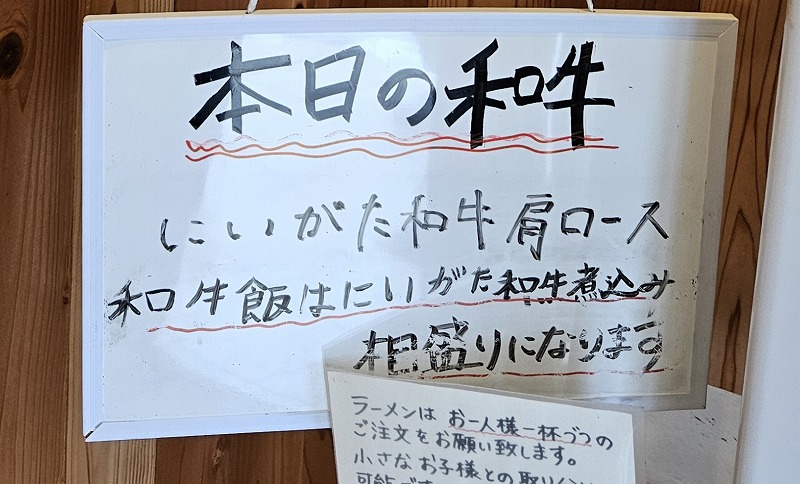 本日の和牛
にいがた和牛肩ロース
和牛飯はにいがた和牛煮込み
相盛りになります
ラーメンは お一人様一杯づつの
ご注文をお願い致します。
小さなお子様との取り
可能です